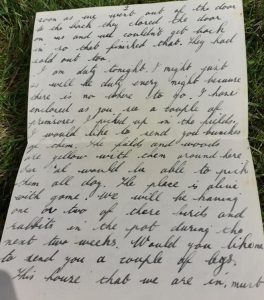 soon as we went out of the door
to the deck they closed the door
on us and we couldn't get back
in so that finished that. They had
sold out too.
I am duty tonight. I might just
as well be duty every night because
there is no where to go. I have
enclosed as you see a couple of
primroses I picked up in the fields,
I would like to send you bunches
of them. The fields and woods
are yellow with them around here
you'd be able to pick
them all day. The place is alive
with game. We will be having
one or two of these birds and
rabbits in the pot during the
next two weeks. Would you like me
to send you a couple of legs.
This house that we are in, must